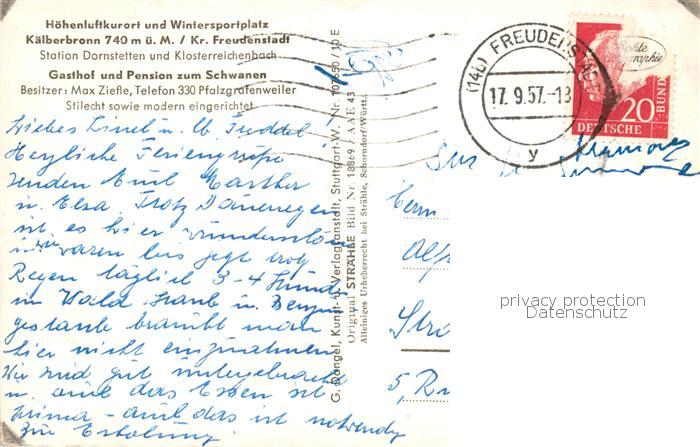 Höhenluftkurort und Wintersportplatz
Kälberbronn 740 m ü. M. / Kr. Freudenstadt
Station Dornstetten und Klosterreichenbach
Gasthof und Pension zum Schwanen
Besitzer: Max Ziefle, Telefon 330 Pfalzgrafenweiler
Stilecht sowie modern eingerichtet
Liebes Liesel u. lb.
Herzliche Feriengrüße
senden Emil Marthe
u. Elsa. Trotz Dauerregen
ist es hier wunderschön
wir waren bis jetzt trotz
Regen täglich 3-4 Stunden
im Wald. Staub u. Benzin
gestank braucht man
hier nicht einzunehmen
Wir sind gut untergebracht
u. auch das Essen ist
prima - auch das ist notwendig
zur Erholung.
G. Dengel, Kunst- u. Verlagsanstalt, Stuttgart-W.
Original STRÄHLE Bild Nr. 18869 / AAE 43
Alleiniges Urheberrecht bei Strähle, Schorndorf/Württ.
(14b) FREUDENSTADT
17. 9. 57.-18
y
20
DEUTSCHE
BUND
Herrn
Str
5, R
privacy protection
Datenschutz